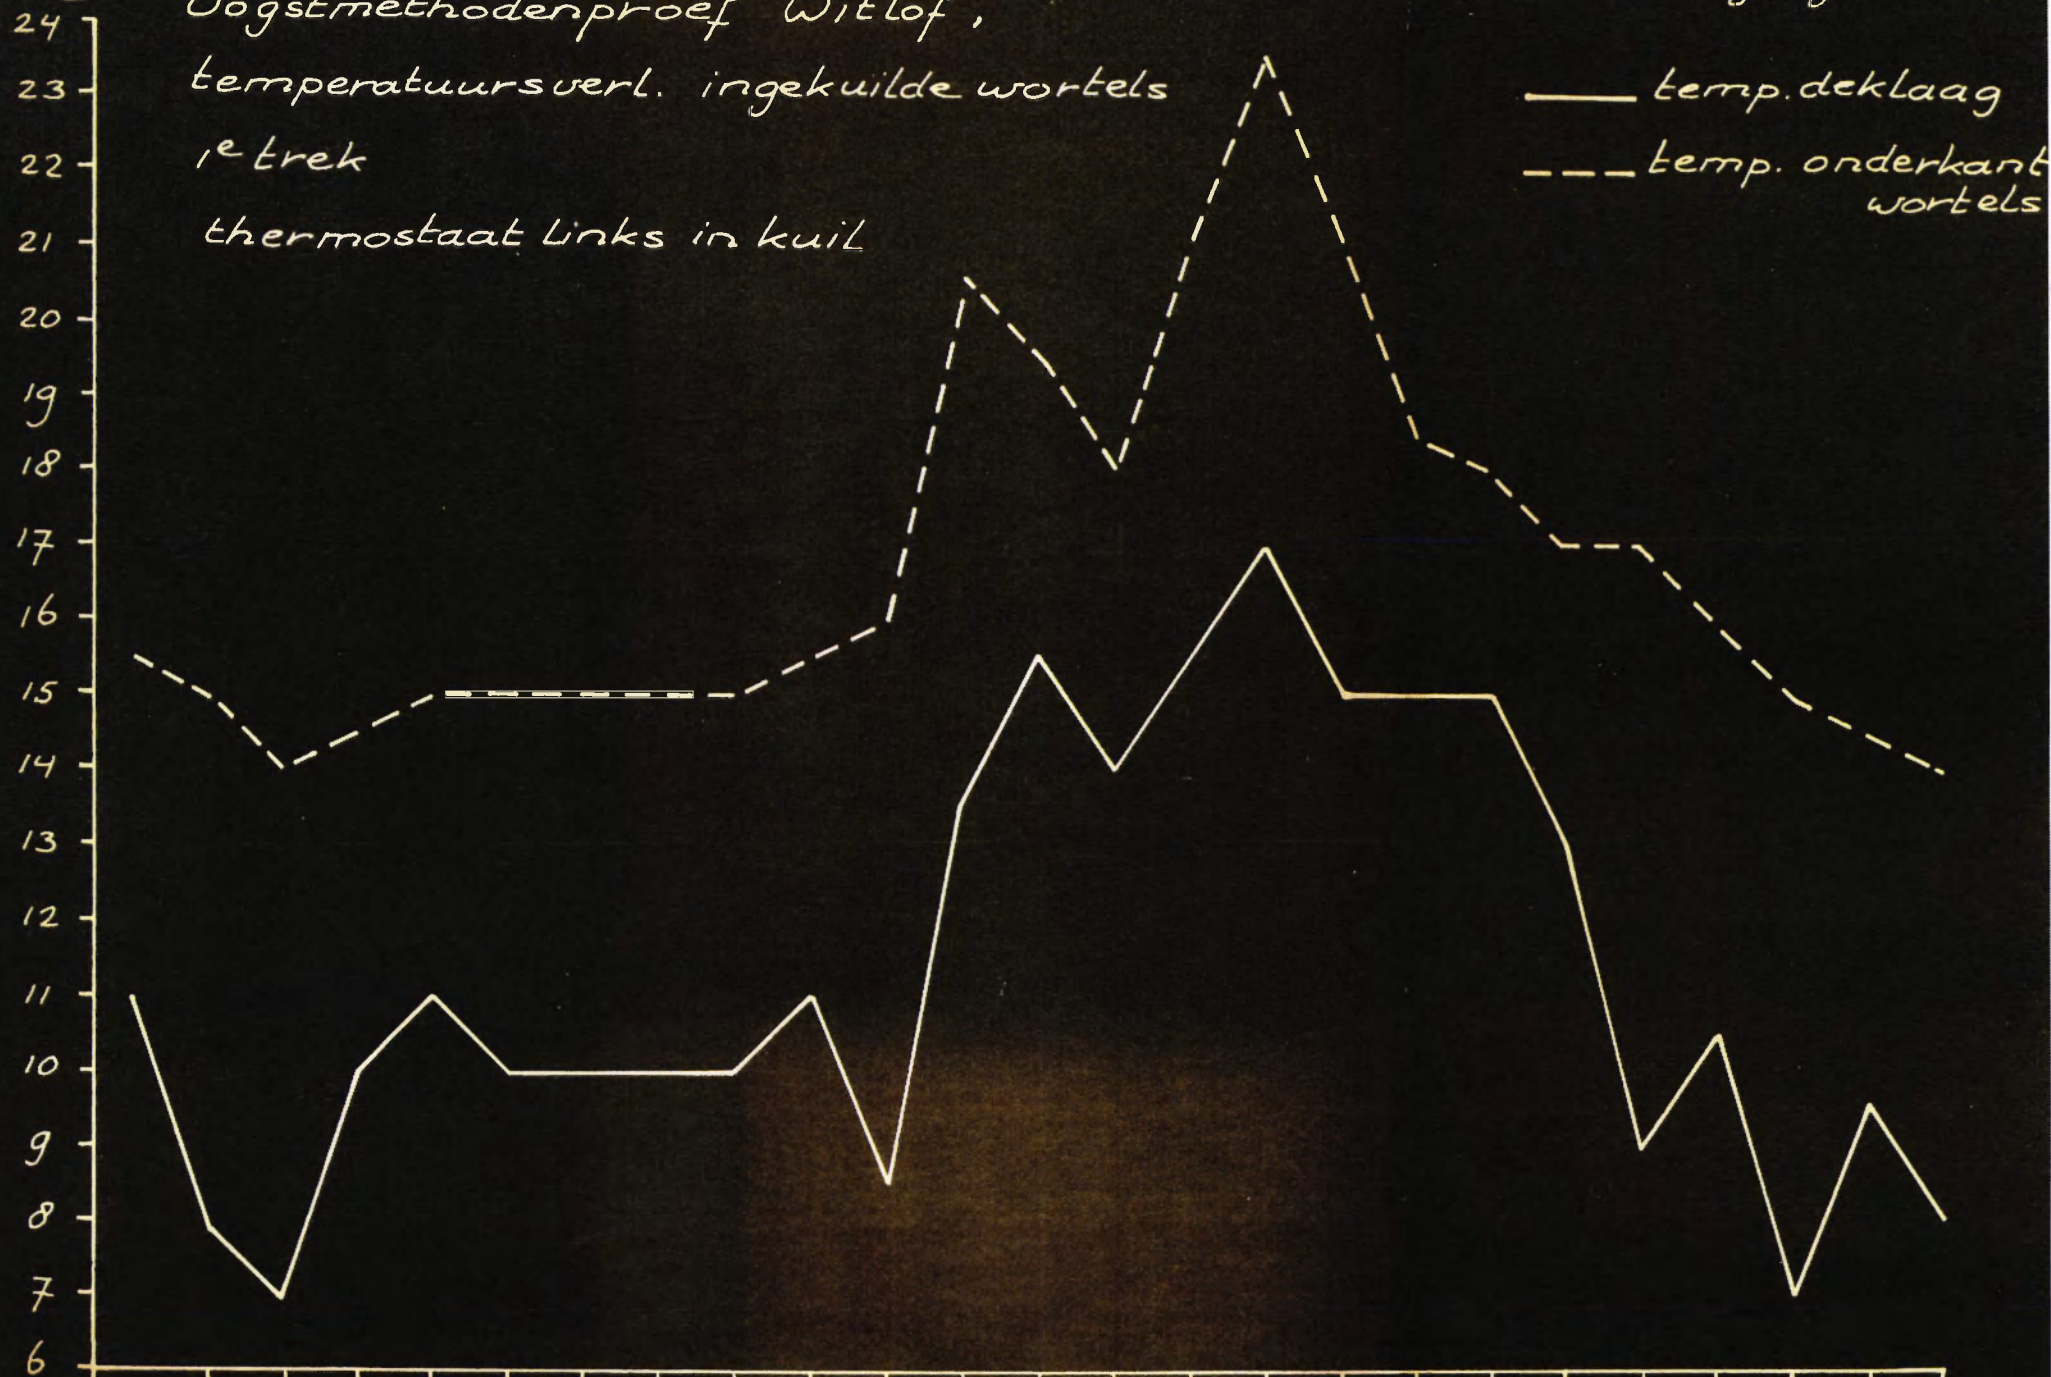 Oogstmethodenproef Witlof,
temperatuursverl. ingekuilde wortels
1e trek
thermostaat links in kuil
temp. deklaag
temp. onderkant
wortels
24
23
22
21
20
19
18
17
16
15
14
13
12
11
10
9
8
7
6